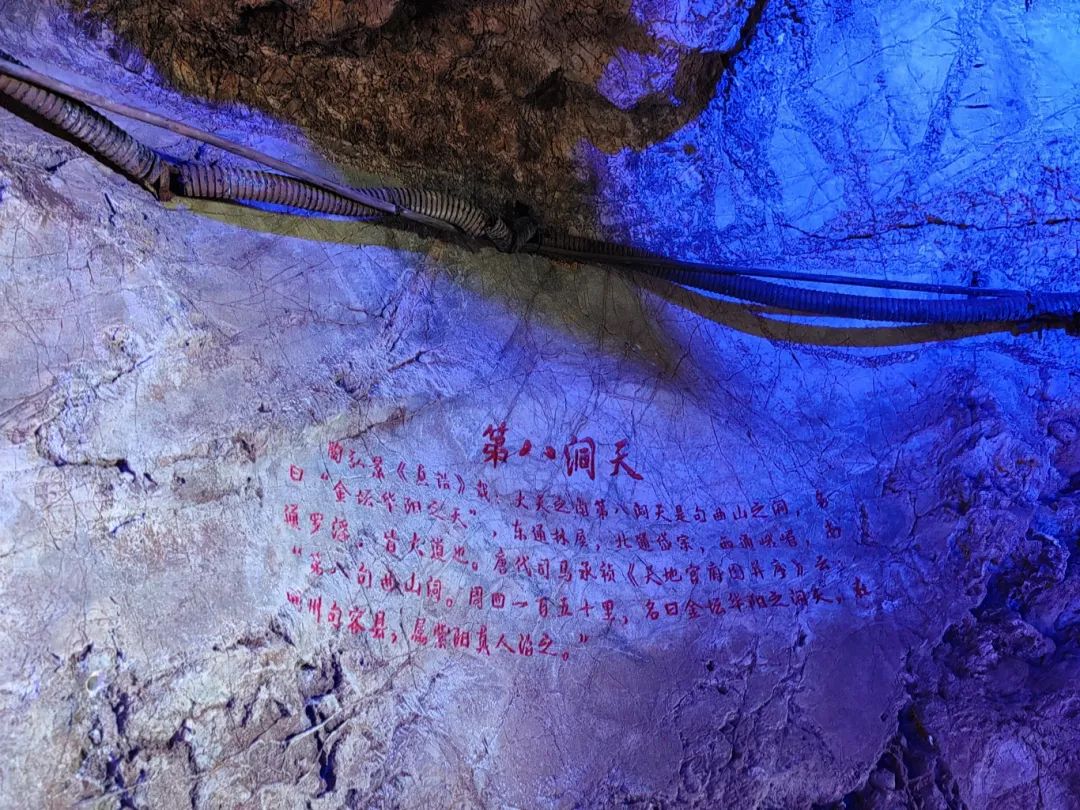 第八洞天
陶弘景《真诰》载：大天之内第八洞天是句曲山之洞，名
曰“金坛华阳之天”，东通林屋，北通岱宗，西通峨嵋，南
通罗浮。皆大道也。唐代司马承祯《天地宫府图并序》云：
“第八句曲山洞。周回一百五十里，名曰金坛华阳之洞天，在
州句容县，属紫阳真人治之。”